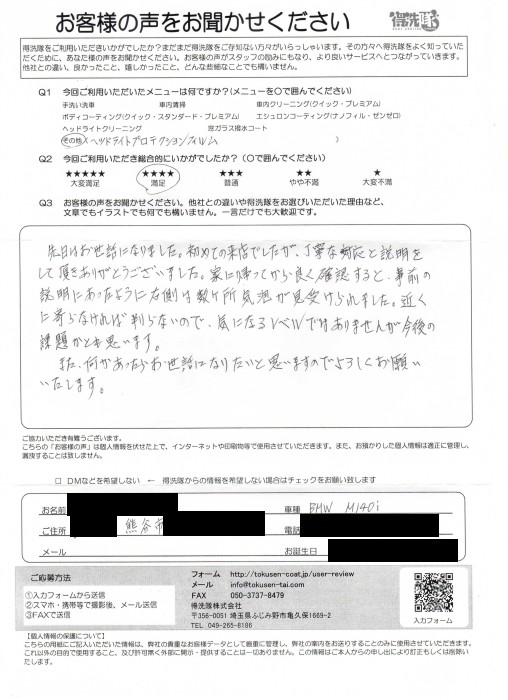 お客様の声をお聞かせください
得洗隊
得洗隊をご利用いただきいかがでしたか？まだまだ得洗隊をご存知ない方々がいらっしゃいます。その方々へ得洗隊をよく知っていた
だくために、あなた様の声をお聞かせください。お客様の声がスタッフの励みにもなり、より良いサービスへとつながっていきます。
他社との違い、良かったこと、嬉しかったこと、どんな些細なことでも構いません。
Q1 今回ご利用いただいたメニューは何ですか？(メニューを〇で囲んでください)
手洗い洗車 車内清掃 車内クリーニング(クイック・プレミアム)
ボディコーティング(クイック・スタンダード・プレミアム) エシュロンコーティング(ナノフィル・ゼンゼロ)
ヘッドライトクリーニング 窓ガラス撥水コート
その他(ヘッドライトプロテクションフィルム )
Q2 今回ご利用いただき総合的にいかがでしたか？(〇で囲んでください)
★★★★★ ★★★★ ★★★ ★★ ★
大変満足 満足 普通 やや不満 大変不満
Q3 お客様の声をお聞かせください。他社との違いや得洗隊をお選びいただいた理由など、
文章でもイラストでも何でも構いません。一言だけでも大歓迎です。
先日はお世話になりました。初めての来店でしたが、丁寧な対応と説明を
して頂きありがとうございました。家に帰ってから良く確認すると、事前の
説明にあったように右側は数ヶ所気泡が見受けられました。近く
に寄らなければ判らないので、気になるレベルではありませんが今後の
課題かとも思います。
また、何かあったらお世話になりたいと思いますのでよろしくお願い
いたします。
ご協力いただき有難うございます。
こちらの「お客様の声」は個人情報を伏せた上で、インターネットや印刷物等で使用させていただきます。また、お預かりした個人情報は適正に管理し、
漏洩することは致しません。
□ DMなどを希望しない ← 得洗隊からの情報を希望しない場合はチェックをお願い致します
お名前 車種 BMW M140i
ご住所 熊谷市 電話
メール お誕生日
ご応募方法
①入力フォームから送信
②スマホ・携帯等で撮影後、メール送信
③FAXで送信
フォーム http://tokusen-coat.jp/user-review
メール info@tokusen-tai.com
FAX 050-3737-8479
得洗隊株式会社
〒356-0051 埼玉県ふじみ野市亀久保1669-2
TEL 049-265-8186
入力フォーム
【個人情報の保護について】
こちらの用紙にご記入いただいた情報は、弊社の貴重なお客様データとして厳重に管理し、弊社の案内をお送りすることのみに使用させていただきます。
これ以外の目的で使用すること、及び許可無く外部に開示・提供することは一切ありません。この情報はご本人からの申し出により訂正もしくは削除い
たします。